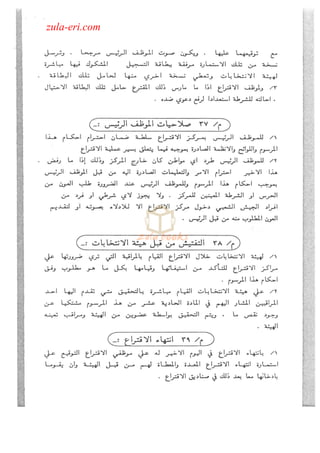 zula-eri.com
مع توقيعهما عليها . ويكون صوت الموظف الرئيس مرجحا . وترسل
نسخة من تلك الاستمارة مرفقة ببطاقة التسجيل المشكوك فيها مباشرة
لهيئة الانتخابات وتعطي نسخة اخري منها لحامل تلك البطاقة .
٣/ ولموظف الاقتراع اذا ما مارس ذلك المقترع حامل تلك البطاقة الاحتيال
احالته للشرطة استعدادا لرفع دعوي ضده .
م/ ٣٧ صلاحيات الموظف الرئيس :ــ
١/ للموظف الرئيس بمركز الاقتراع سلطة ضمان احترام احكام هذا
المرسوم واللوائح والانظمة الصادرة بموجبه فيما يتعلق بسير عملية الاقتراع
٢/ للموظف الرئيس طرد اي مواطن كان خارج المركز وذلك إذا ما رفض
هذا الاخير احترام الامر والتعليمات الصادرة اليه من قبل الموظف الرئيس
بموجب احكام هذا المرسوم وللموظف الرئيس عند الضرورة طلب العون من
الحرس او الشرطة المعينين للمركز . ولا يجوز لاي شرطي او فرد من
افراد الجيش الشعبي دخول مركز الاقتراع الا للادلاء بصوته او لتقديم
العون المطلوب منه من قبل الرئيس .
م/ ٣٨ التفتيش من قبل هيئة الانتخابات :ــ
١/ لهيئة الانتخابات خلال الاقتراع القيام بالمراقبة التي تري ضرورتها علي
مراكز الاقتراع للتأكد من استيفائها وقيامها بكل ما هو مطلوب وفق
احكام هذا المرسوم .
٢/ علي هيئة الانتخابات القيام مباشرة بالتحقيق متي تقدم اليها احد
المراقبين المشار اليهم في المادة الحادية عشر من هذ المرسوم مشتكيا عن
وجود نقص ما . ويتم التحقيق بواسطة عضوين من الهيئة ومراقب تعينه
الهيئة .
م/ ٣٩ انتهاء الاقتراع :ــ
١/ بانتهاء الاقتراع في اليوم الاخير له علي موظفي الاقتراع التوقيع علي
استمارة انتهاء الاقتراع المعدة والمعطاة لهم من قبل الهيئة وان يقوموا
بادخالها معا بعد ذلك في صناديق الاقتراع .